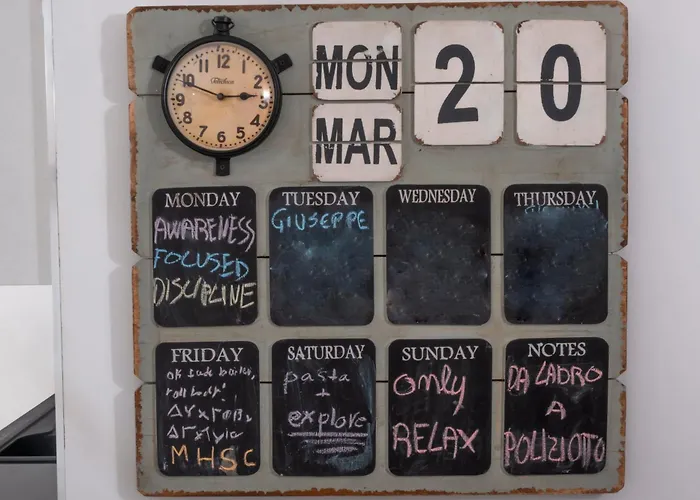 MON
20
MAR
12
1
2
3
4
5
6
7
8
9
10
11
MONDAY
AWARENESS
FOCUSED
DISCIPLINE
TUESDAY
GIUSEPPE
WEDNESDAY
THURSDAY
FRIDAY
MHSC
SATURDAY
pasta
+
explore
SUNDAY
only
RELAX
NOTES
DA LADRO
A
POLIZIOTTO